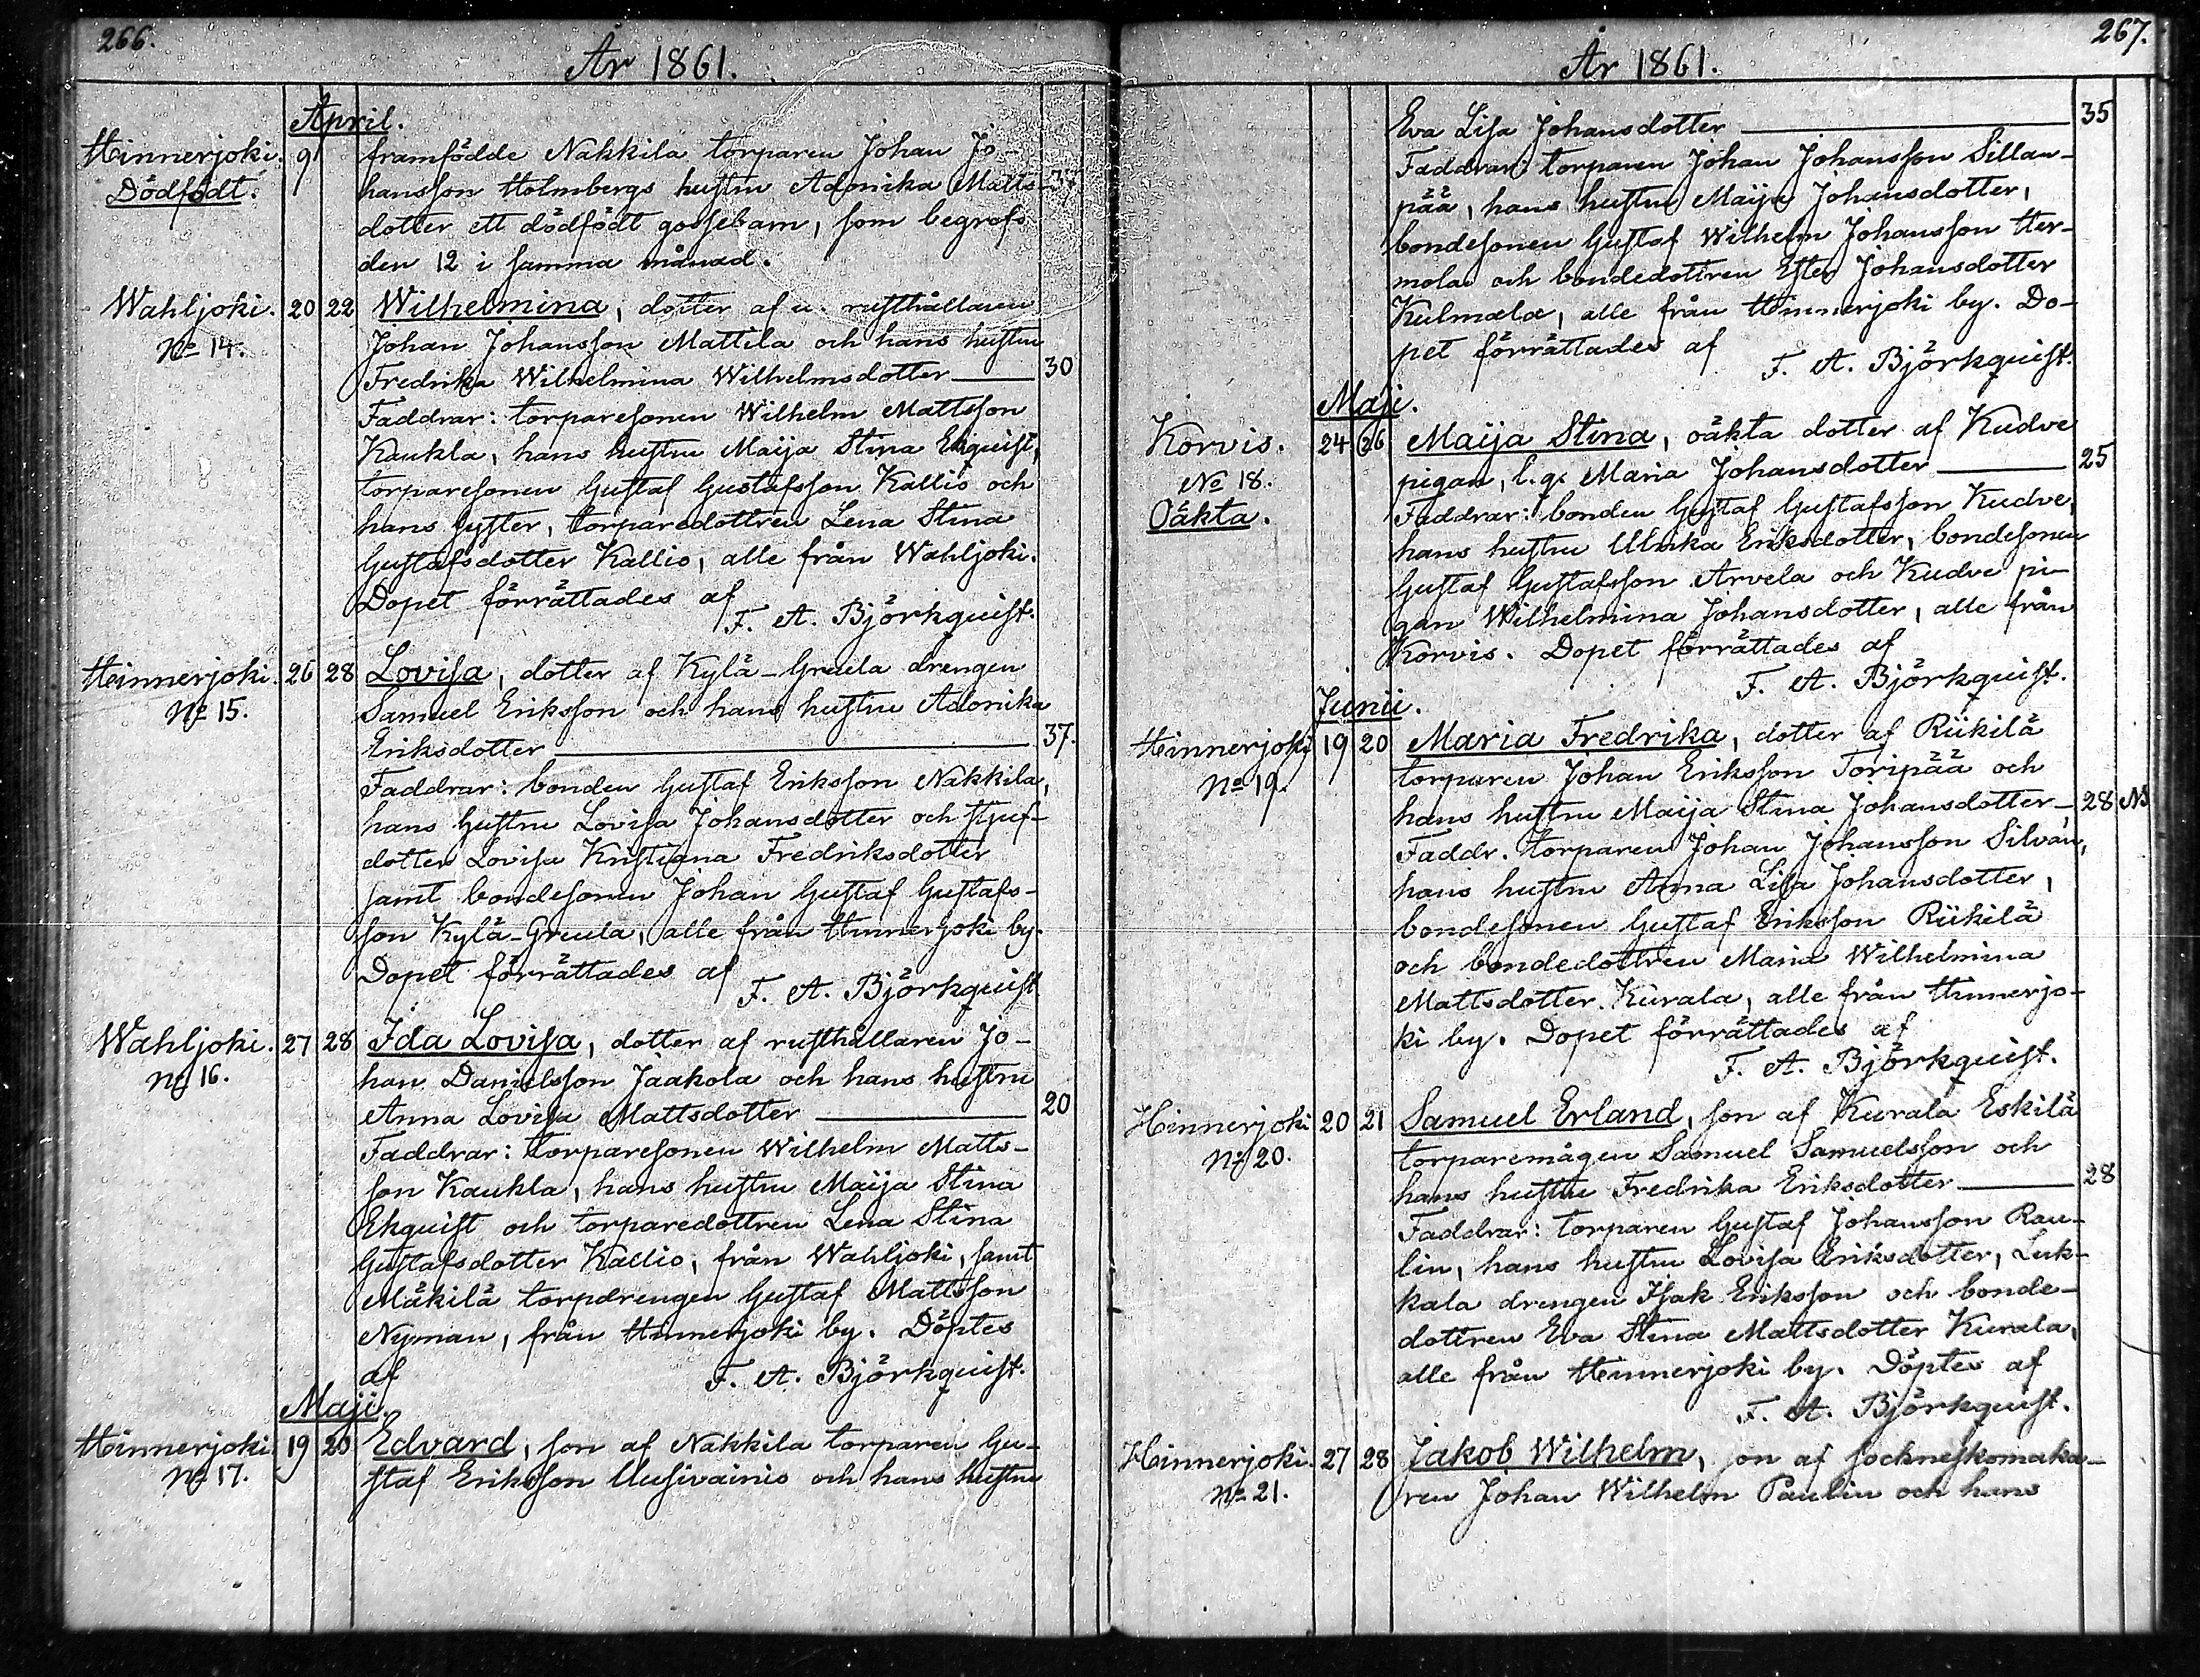 266.
År 1861.
April.
Hinnerjoki. 9 framfödde Nakkila torparen Johan Jo-
Dödfödt. hansson Holmbergs hustru Adonika Matts- 37
dotter ett dödfödt gossebarn, som begrofs
den 12 i samma månad.
Wahljoki. 20 22 Wilhelmina, dotter af u. rusthållaren
No 14. Johan Johansson Mattila och hans hustru
Fredrika Wilhelmina Wilhelmsdotter 30
Faddrar: torparesonen Wilhelm Mattsson
Kaukla, hans hustru Maija Stina Ekquist,
torparesonen Gustaf Gustafsson Kallio och
hans syster, torparedottren Lena Stina
Gustafsdotter Kallio, alle från Wahljoki.
Dopet förrättades af
F. A. Björkquist.
Hinnerjoki. 26 28 Lovisa, dotter af Kylä-Greula drengen
No 15. Samuel Eriksson och hans hustru Adonika
Eriksdotter 37.
Faddrar: bonden Gustaf Eriksson Nakkila,
hans hustru Lovisa Johansdotter och stjuf-
dotter Lovisa Kristiana Fredriksdotter
samt bondesonen Johan Gustaf Gustafs-
son Kylä-Greula, alle från Hinnerjoki by.
Dopet förrättades af
F. A. Björkquist
Wahljoki. 27 28 Ida Lovisa, dotter af rusthållaren Jo-
No 16. han Danielsson Jaakola och hans hustru
Anna Lovisa Mattsdotter 20
Faddrar: torparesonen Wilhelm Matts-
son Kaukla, hans hustru Maija Stina
Ekquist och torparedottren Lena Stina
Gustafsdotter Kallio, från Wahljoki, samt
Mäkilä torpdrengen Gustaf Mattsson
Nyman, från Hinnerjoki by. Döptes
af F. A. Björkquist.
Maji.
Hinnerjoki 19 20 Edvard, son af Nakkila torparen Gu-
No 17. staf Eriksson Uusivainio och hans hustru
267.
År 1861.
Eva Lisa Johansdotter 35
Faddrar: torparen Johan Johansson Sillan-
pää, hans hustru Maija Johansdotter,
bondesonen Gustaf Wilhelm Johansson Her-
mola och bondedottren Ester Johansdotter
Kulmala, alle från Hinnerjoki by. Do-
pet förrättades af
F. A. Björkquist.
Maji.
Korvis. 24 26 Maija Stina, oäkta dotter af Kudve
No 18. pigan, l.q. Maria Johansdotter 25
Oäkta. Faddrar: bonden Gustaf Gustafsson Kudve,
hans hustru Ulrika Eriksdotter, bondesonen
Gustaf Gustafsson Arvela och Kudve pi-
gan Wilhelmina Johansdotter, alle från
Korvis. Dopet förrättades af
F. A. Björkquist.
Junii.
Hinnerjoki 19 20 Maria Fredrika, dotter af Riikilä
No 19. torparen Johan Eriksson Toripää och
hans hustru Maija Stina Johansdotter 28
Faddr. torparen Johan Johansson Silván,
hans hustru Anna Lisa Johansdotter,
bondesonen Gustaf Eriksson Riikilä
och bondedottren Maria Wilhelmina
Mattsdotter Kurala, alle från Hinnerjo-
ki by. Dopet förrättades af
F. A. Björkquist.
Hinnerjoki 20 21 Samuel Erland, son af Kurala Eskilä
No 20. torparemågen Samuel Samuelsson och
hans hustru Fredrika Eriksdotter 28
Faddrar: torparen Gustaf Johansson Rau-
lin, hans hustru Lovisa Eriksdotter, Luk-
kala drengen Isak Eriksson och bonde-
dottren Eva Stina Mattsdotter Kurala,
alle från Hinnerjoki by. Döptes af
F. A. Björkquist.
Hinnerjoki. 27 28 Jakob Wilhelm, son af sockneskomaka-
No 21. ren Johan Wilhelm Paulin och hans